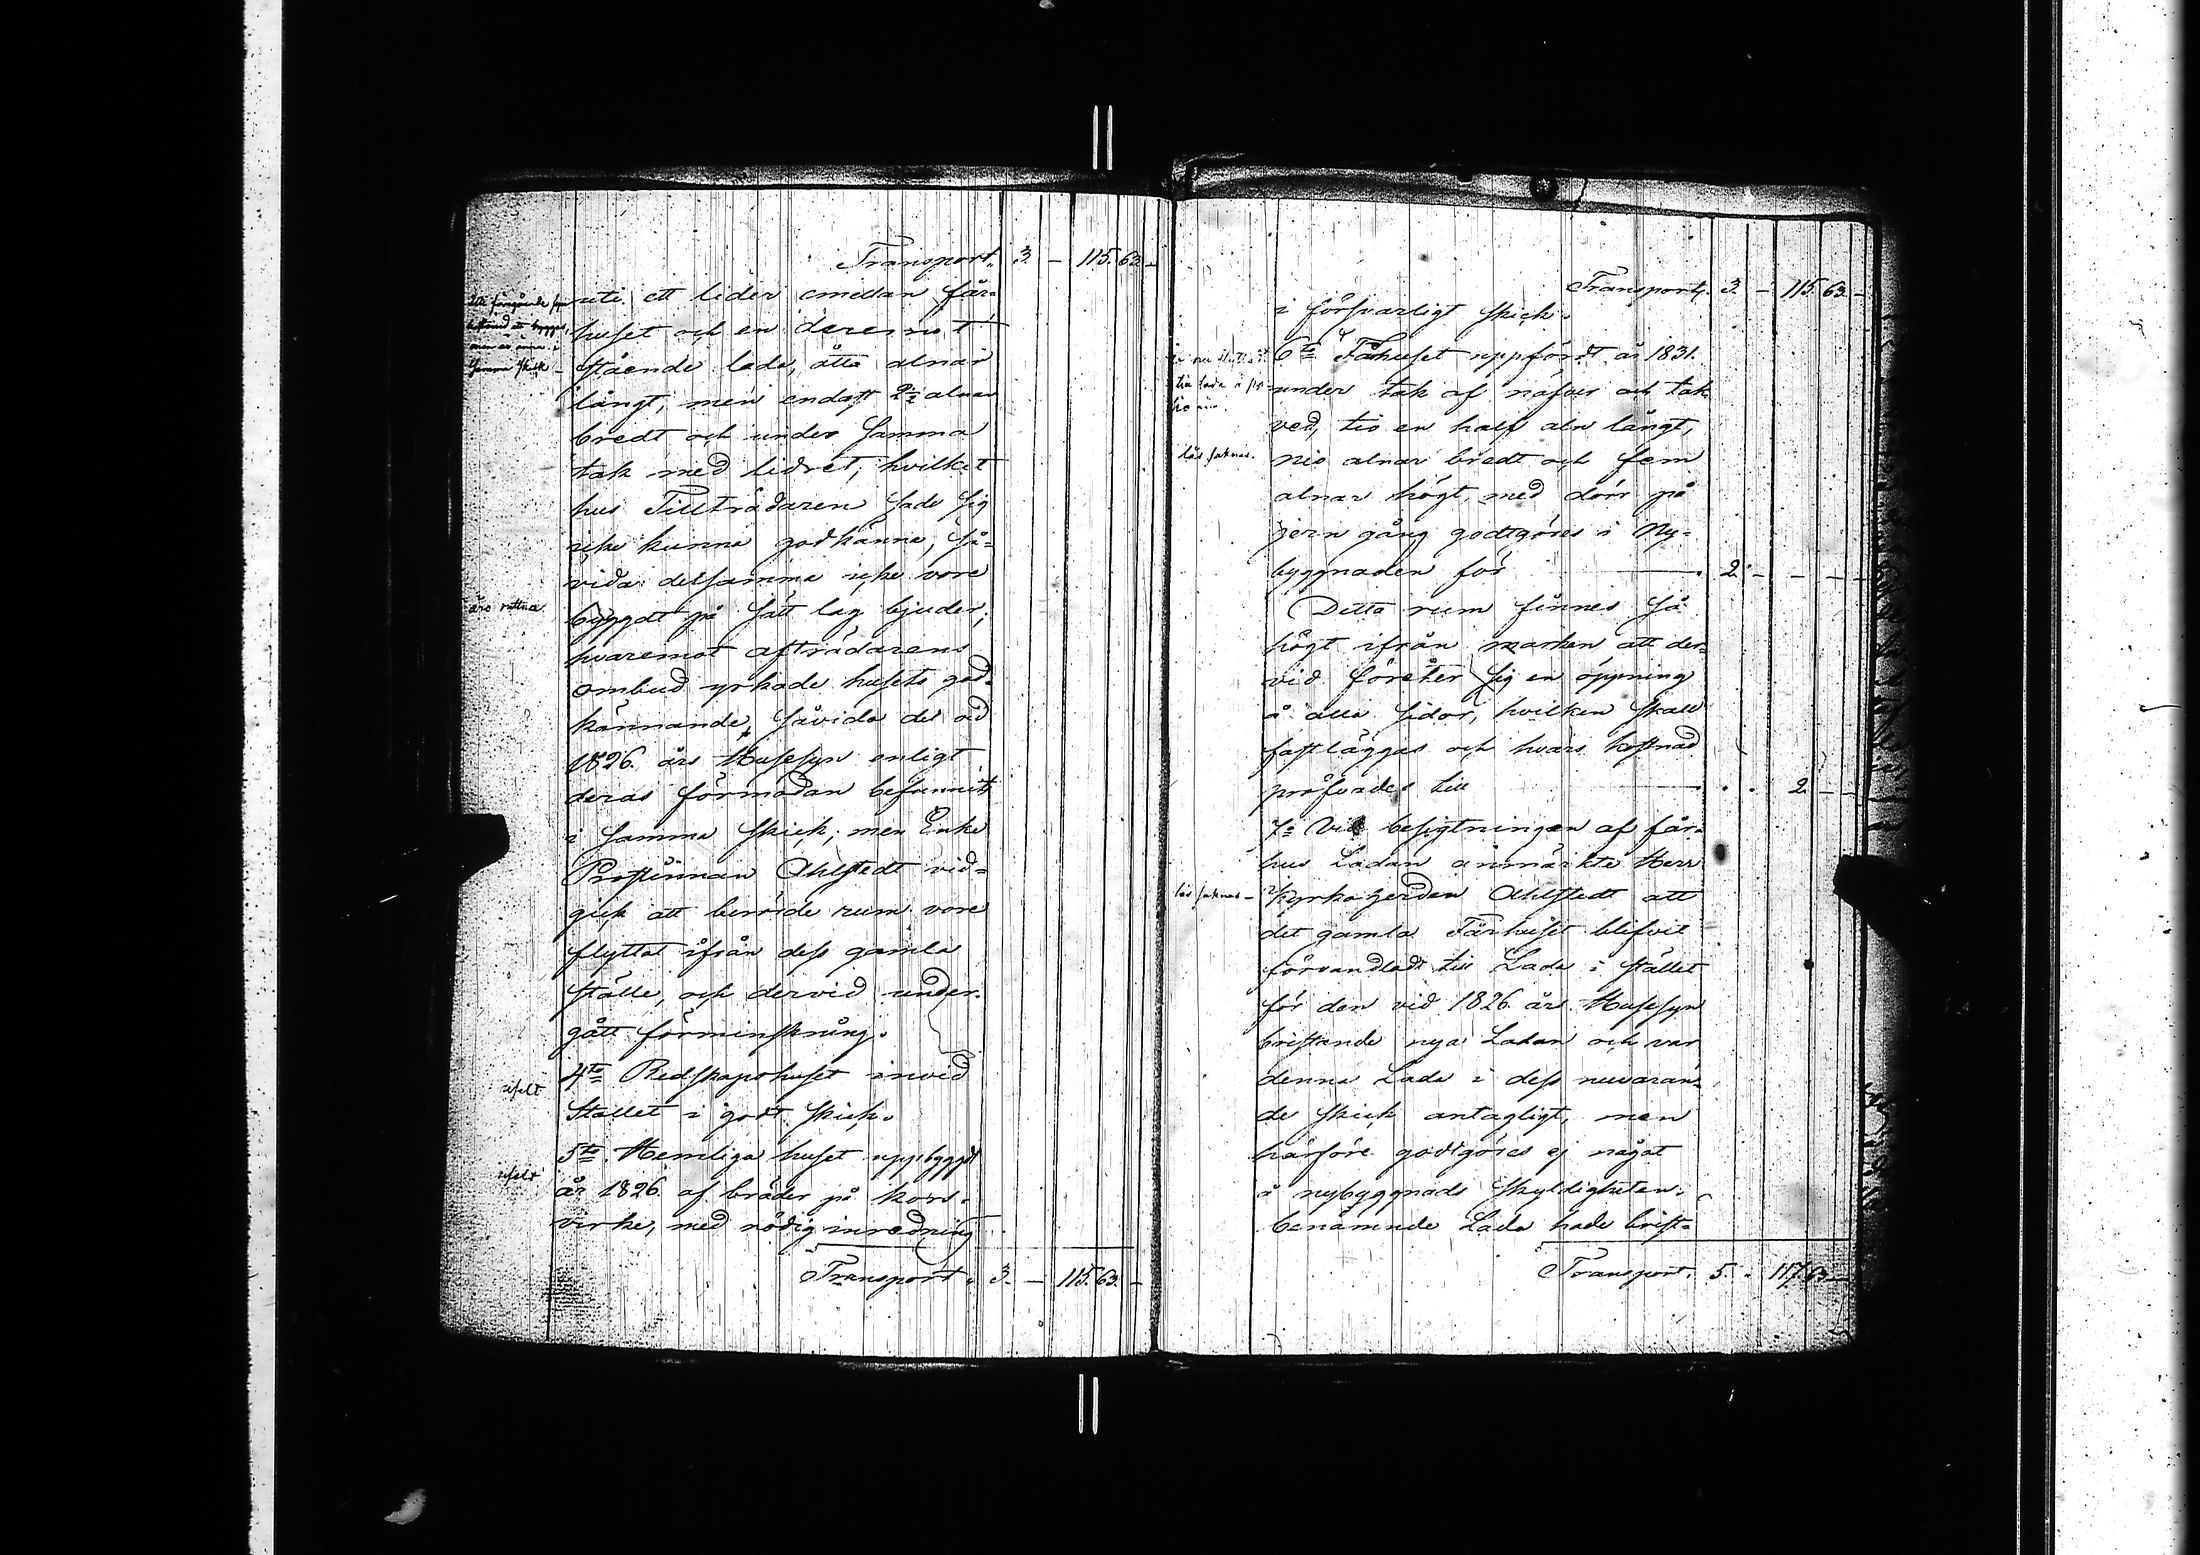 Transport. 3. — 115. 63. —
uti ett lider emellan får-
huset och en deremot
stående lada, åtta alnar
långt, men endast 2½ alnar
bredt och under samma
tak med lidret; hvilket
hus Tillträdaren sade sig
icke kunna godkänna, så-
vida detsamma icke vore
byggdt på sätt lag bjuder;
hvaremot afträdarens
ombud yrkade husets god-
kännande, såvida det vid
1826 års Husesyn enligt
deras förmodan befunnits
i samma skick; men Enke
Prostinnan Ahlstedt vid-
gick att berörde rum vore
flyttat ifrån dess gamla
ställe, och dervid under-
gått förminskning.
4to Redskapshuset invid
Stallet i godt skick.
5to Hemliga huset uppbyggdt
år 1826 af bräder på kors-
virke, med nödig inredning
Transport. 3. — 115. 63. —
samma skick
äro ruttna.
ufelt
ufelt
Transport. 3. — 115. 63. —
i försvarligt skick.
6to Fåhuset uppfördt år 1831.
under tak af näfver och tak-
ved, tio en half aln långt,
nio alnar bredt och fem
alnar högt, med dörr på
jern gång godtgöres i Ny-
byggnaden för — 2. — — —
Detta rum finnes så
högt ifrån marken att der-
vid företer sig en öppning
å alla sidor, hvilken skall
fastläggas och hvars kostnad
pröfvades till — . . 2. — —
7o Vid besigtningen af får-
hus Ladan anmärkte Herr
Kyrkoherden Ahlstedt att
det gamla Fårhuset blifvit
förvandladt till Lada i stället
för den vid 1826 års Husesyn
bristande nya Ladan och var
denna Lada i dess nuvaran-
de skick antagligt, men
härföre godtgöres ej något
å nybyggnads skyldigheten.
benämnde Lada hade brist-
Transport. 5. . 117. 63. —
lås saknas.
lås saknas